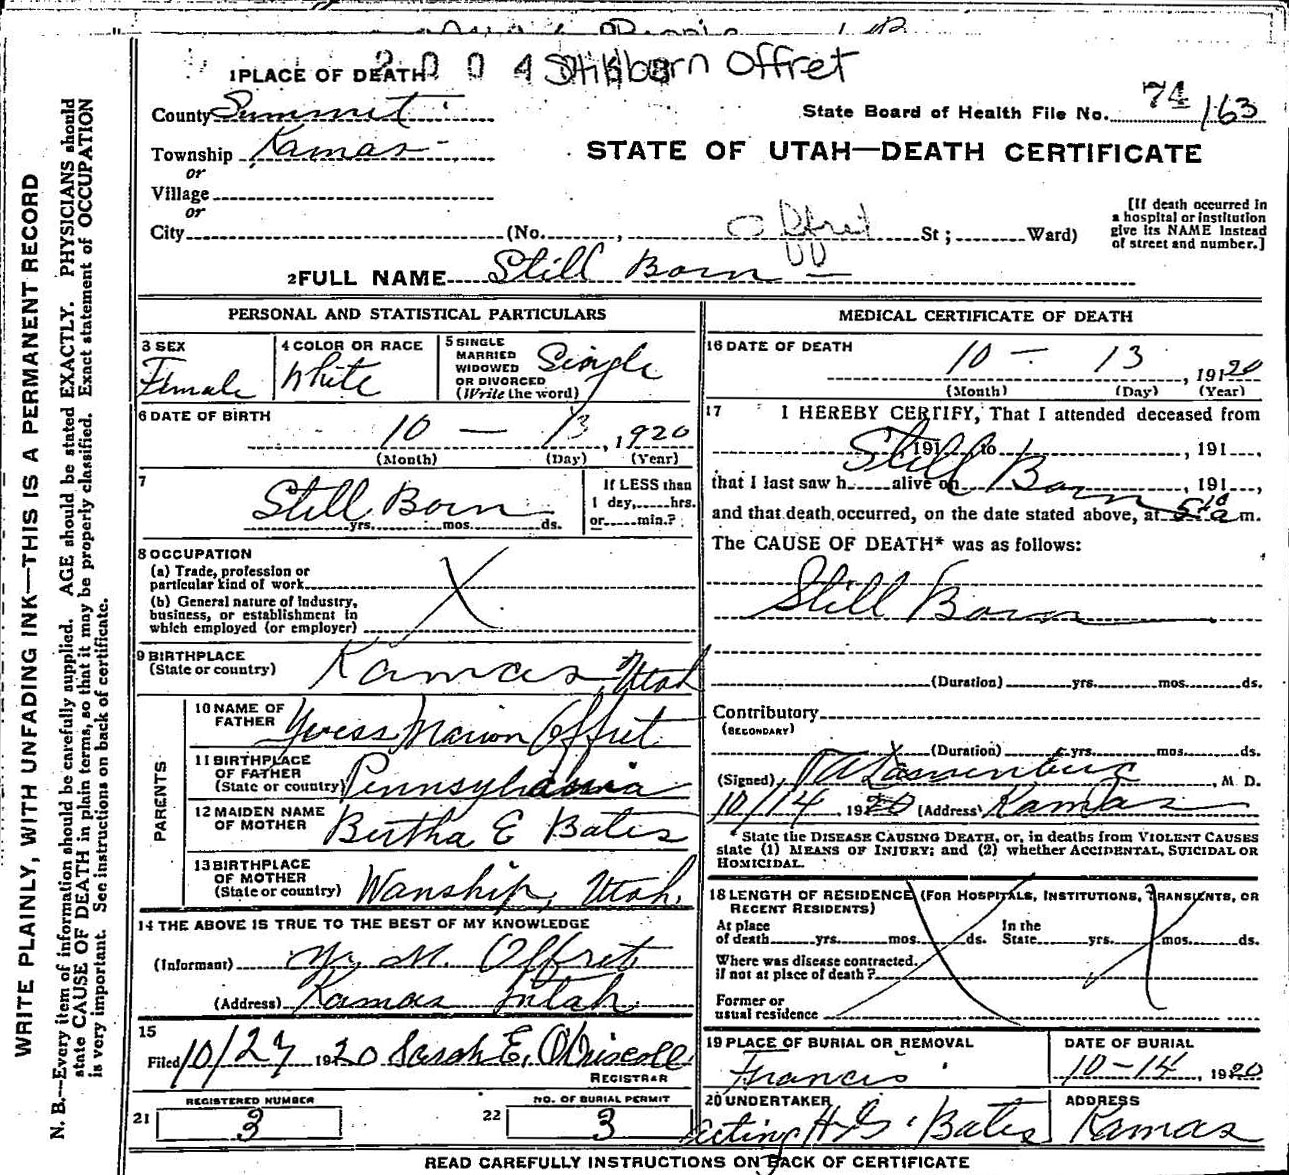 Stillborn Offret
1 PLACE OF DEATH 2 0 0 4
County Summit
State Board of Health File No. 74 163
Township Kamas
or
STATE OF UTAH—DEATH CERTIFICATE
Village
or
City (No. , Offret St ; Ward)
[If death occurred in
a hospital or institution
give its NAME instead
of street and number.]
2 FULL NAME Still Born
WRITE PLAINLY, WITH UNFADING INK—THIS IS A PERMANENT RECORD
N. B.—Every item of information should be carefully supplied. AGE should be stated EXACTLY. PHYSICIANS should
state CAUSE OF DEATH in plain terms, so that it may be properly classified. Exact statement of OCCUPATION
is very important. See instructions on back of certificate.
PERSONAL AND STATISTICAL PARTICULARS
3 SEX
Female
4 COLOR OR RACE
White
5 SINGLE
MARRIED
WIDOWED
OR DIVORCED
(Write the word)
Single
6 DATE OF BIRTH
10 — 13 , 1920
(Month) (Day) (Year)
7
Still Born
yrs. mos. ds.
If LESS than
1 day, hrs.
or min.?
8 OCCUPATION
(a) Trade, profession or
particular kind of work
(b) General nature of industry,
business, or establishment in
which employed (or employer)
9 BIRTHPLACE
(State or country)
Kamas, Utah
PARENTS
10 NAME OF
FATHER
Marion Offret
11 BIRTHPLACE
OF FATHER
(State or country)
Pennsylvania
12 MAIDEN NAME
OF MOTHER
Bertha E Bates
13 BIRTHPLACE
OF MOTHER
(State or country)
Wanship, Utah.
14 THE ABOVE IS TRUE TO THE BEST OF MY KNOWLEDGE
(Informant) Y. M. Offret
(Address) Kamas Utah
15
Filed 10/27 1920 Sarah E. O'Driscoll
REGISTRAR
REGISTERED NUMBER
21 3
NO. OF BURIAL PERMIT
22 3
MEDICAL CERTIFICATE OF DEATH
16 DATE OF DEATH
10 — 13 , 1920
(Month) (Day) (Year)
17 I HEREBY CERTIFY, That I attended deceased from
, 191 to , 191 ,
Still Born
that I last saw h alive on , 191 ,
and that death occurred, on the date stated above, at m.
The CAUSE OF DEATH* was as follows:
Still Born
(Duration) yrs. mos. ds.
Contributory
(SECONDARY)
(Duration) yrs. mos. ds.
(Signed) , M. D.
10/14 1920 (Address) Kamas
State the DISEASE CAUSING DEATH, or, in deaths from VIOLENT CAUSES
state (1) MEANS OF INJURY; and (2) whether ACCIDENTAL, SUICIDAL OR
HOMICIDAL.
18 LENGTH OF RESIDENCE (FOR HOSPITALS, INSTITUTIONS, TRANSIENTS, OR
RECENT RESIDENTS)
At place
of death yrs. mos. ds.
In the
State yrs. mos. ds.
Where was disease contracted.
if not at place of death?
Former or
usual residence
19 PLACE OF BURIAL OR REMOVAL
Francis
DATE OF BURIAL
10-14 , 1920
20 UNDERTAKER
Acting H. G. Bates
ADDRESS
Kamas
READ CAREFULLY INSTRUCTIONS ON BACK OF CERTIFICATE